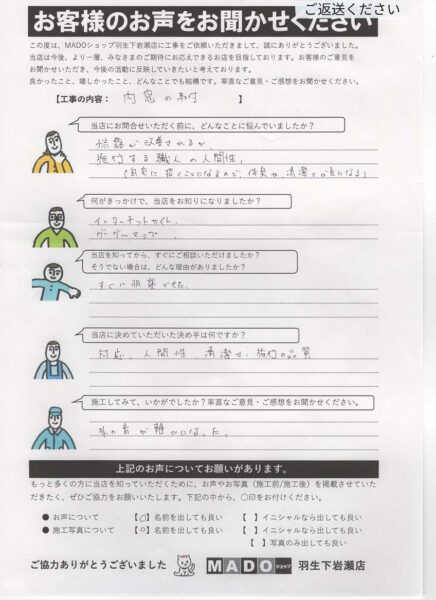 ご返送ください
お客様のお声をお聞かせください
この度は、MADOショップ羽生下岩瀬店に工事をご依頼いただきまして、誠にありがとうございました。
当店は今後、より一層、みなさまのご期待にお応えできるお店を目指しております。お客様のご意見を
お聞かせいただき、今後の活動に反映していきたいと考えております。
良かったこと、嬉しかったこと、どんなことでも結構です。率直なご意見・ご感想をお聞かせください。
【工事の内容: 内窓の取付 】
当店にお問合せいただく前に、どんなことに悩んでいましたか?
結露が改善されるか、
施行する職人の人間性、
(自宅に招くことになるので、体臭や清潔さが気になる)
何がきっかけで、当店をお知りになりましたか?
インターネットサイト、
グーグルマップ、
当店を知ってから、すぐにご相談いただけましたか?
そうでない場合は、どんな理由がありましたか?
すぐに相談できた。
当店に決めていただいた決め手は何ですか?
対応、人間性、清潔さ、施行の品質
施工してみて、いかがでしたか?率直なご意見・ご感想をお聞かせください。
外の音が静かになった、
上記のお声についてお願いがあります。
もっと多くの方に当店を知っていただくために、お声やお写真(施工前/施工後)を掲載させていた
だきたく、ぜひご協力をお願いいたします。下記の中から、○印をお付けください。
● お声について 【○】名前を出しても良い 【 】イニシャルなら出しても良い
● 施工写真について 【○】名前を出しても良い 【 】イニシャルなら出しても良い
【 】写真のみ出しても良い
ご協力ありがとうございました MADOショップ 羽生下岩瀬店